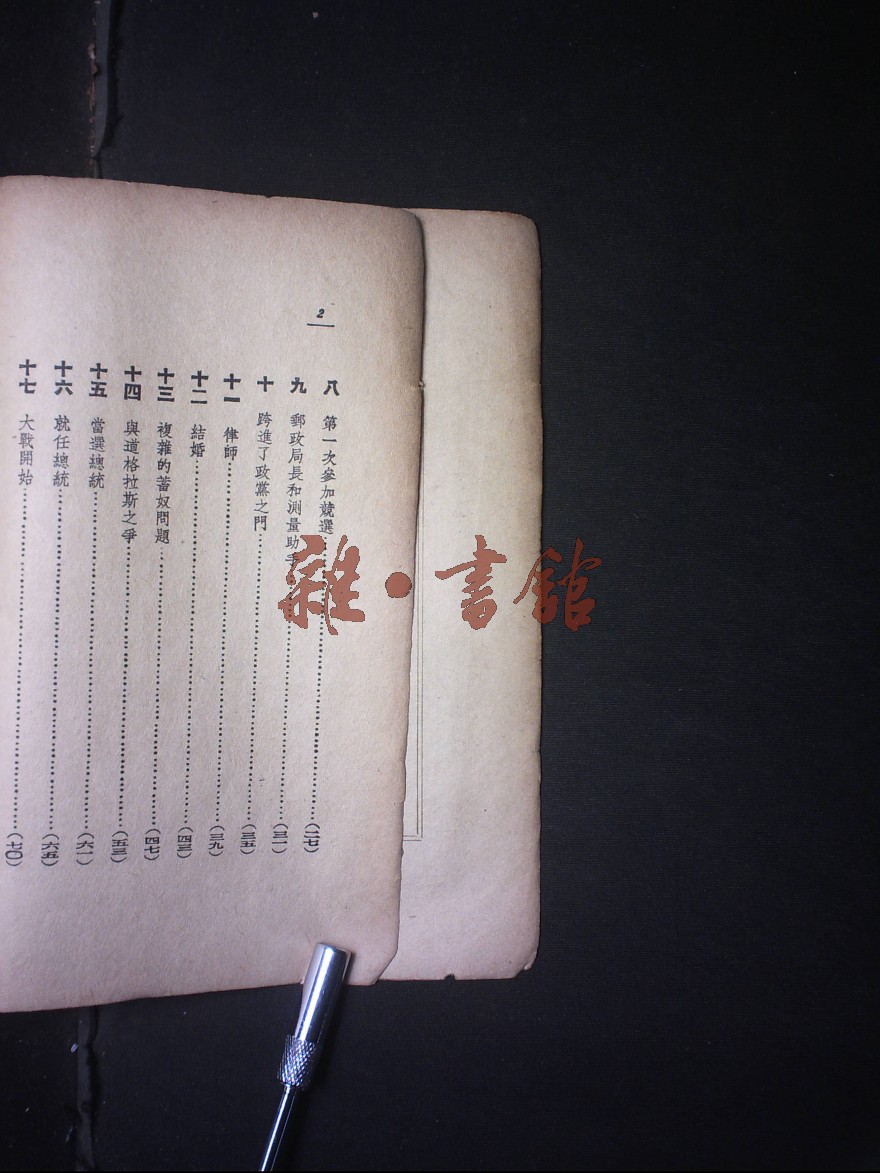 2
八 第一次參加競選……(二七)
九 郵政局長和測量助手……(三一)
十 跨進了政黨之門……(三五)
十一 律師……(三九)
十二 結婚……(四三)
十三 複雜的蓄奴問題……(四七)
十四 與道格拉斯之爭……(五三)
十五 當選總統……(六一)
十六 就任總統……(六五)
十七 大戰開始……(七〇)
雜·書館